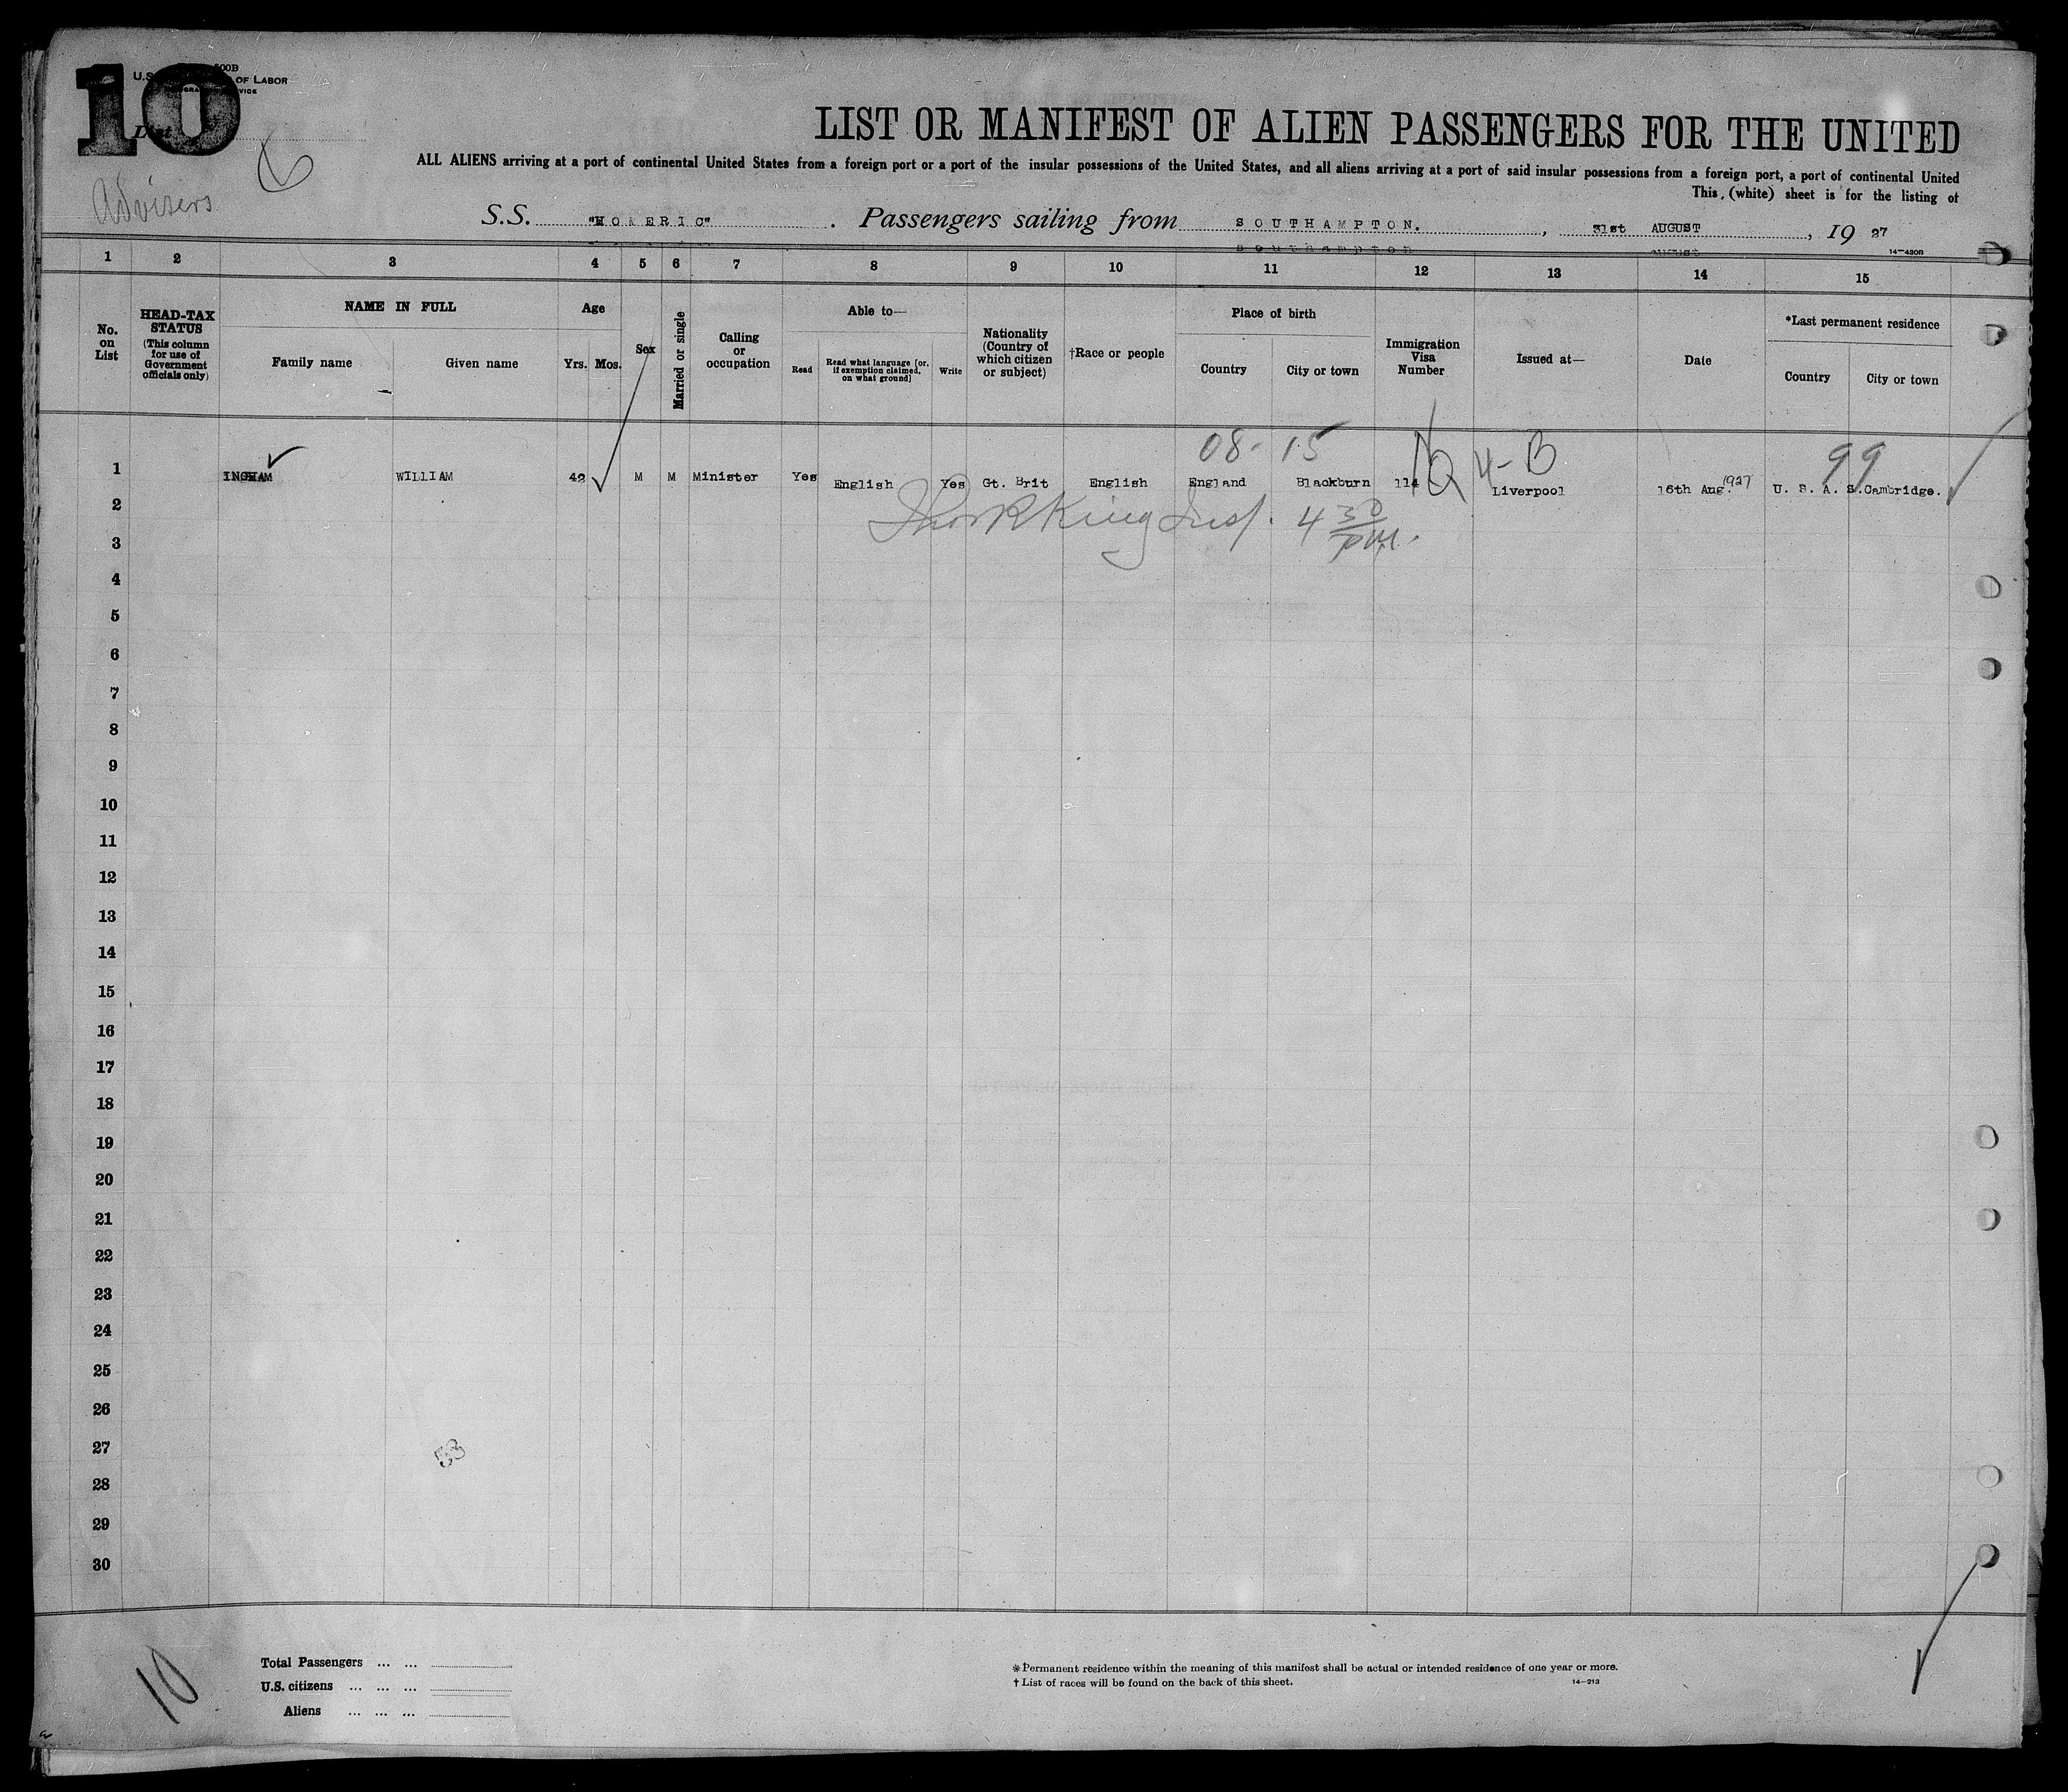 10
U.S. OF LABOR
List
Advisers
LIST OR MANIFEST OF ALIEN PASSENGERS FOR THE UNITED
ALL ALIENS arriving at a port of continental United States from a foreign port or a port of the insular possessions of the United States, and all aliens arriving at a port of said insular possessions from a foreign port, a port of continental United
This (white) sheet is for the listing of
S.S. "HOMERIC" . Passengers sailing from SOUTHAMPTON. , 31st AUGUST , 19 27
Southampton August
14—430B
1 2 3 4 5 6 7 8 9 10 11 12 13 14 15
No. on List
HEAD-TAX STATUS (This column for use of Government officials only)
NAME IN FULL
Family name Given name
Age
Yrs. Mos.
Sex
Married or single
Calling or occupation
Able to—
Read Read what language [or, if exemption claimed, on what ground] Write
Nationality (Country of which citizen or subject)
†Race or people
Place of birth
Country City or town
Immigration Visa Number
Issued at—
Date
*Last permanent residence
Country City or town
08-15 NQ 4-B 99
1 INGHAM WILLIAM 42 M M Minister Yes English Yes Gt. Brit English England Blackburn 114 Liverpool 16th Aug. 1927 U. S. A. S.Cambridge.
2 King Insp. 4 30
3 pm.
4
5
6
7
8
9
10
11
12
13
14
15
16
17
18
19
20
21
22
23
24
25
26
27 53
28
29
30
10
Total Passengers ... ...
U.S. citizens ... ... ...
Aliens ... ... ...
* Permanent residence within the meaning of this manifest shall be actual or intended residence of one year or more.
† List of races will be found on the back of this sheet.
14—213